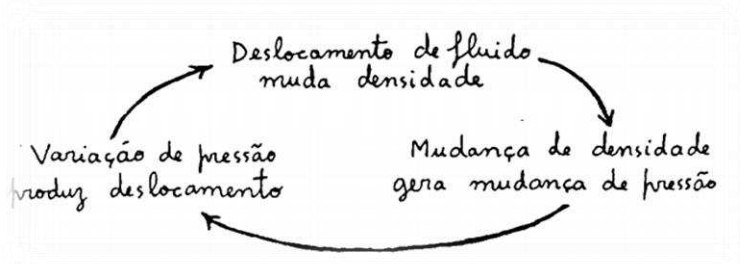 Deslocamento de fluido
muda densidade
Mudança de densidade
gera mudança de pressão
Variação de pressão
produz deslocamento